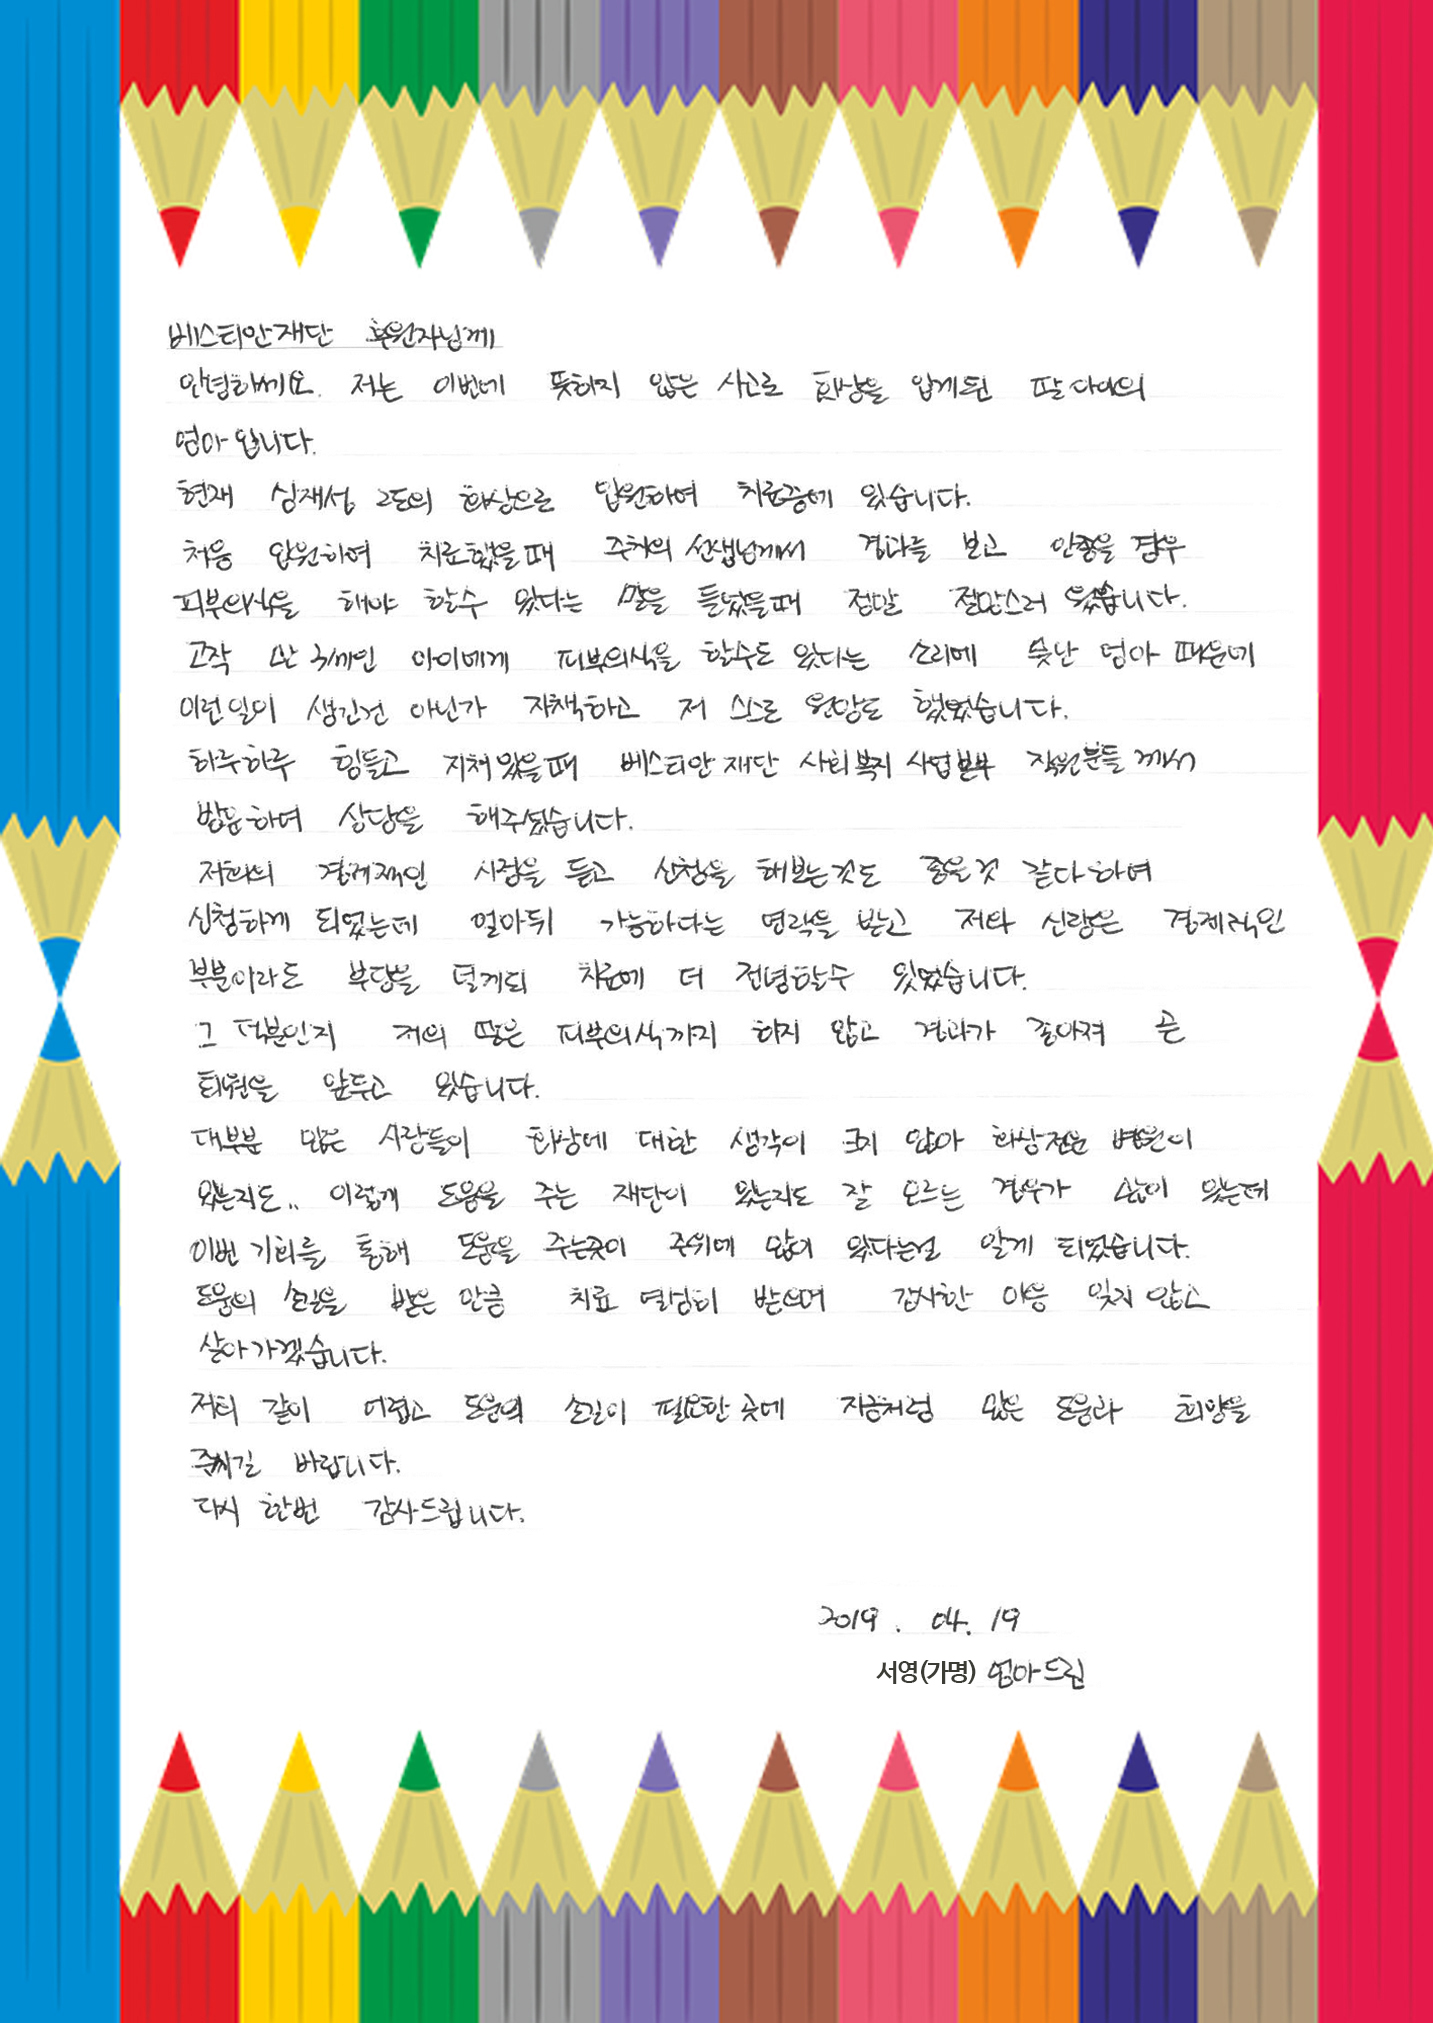 베스티안재단 후원자님께
안녕하세요. 저는 이번에 뜻하지 않은 사고로 화상을 입게된 딸아이의
엄마입니다.
현재 심재성 2도의 화상으로 입원하여 치료중에 있습니다.
처음 입원하여 치료했을때 주치의 선생님께서 경과를 보고 안좋을 경우
피부의식을 해야 할수 있다는 말을 들었을때 정말 절망스러웠습니다.
고작 아이에게 피부의식을 할수도 있다는 소리에 못난 엄마 때문에
이런일이 생긴건 아닌가 자책하고 저 스스로 원망도 했었습니다.
하루하루 힘들고 지쳐있을때 베스티안재단 사회복지사업본부 직원분들께서
방문하여 상담을 해주셨습니다.
저희의 경제적인 사정을 듣고 신청을 해보는것도 좋을것 같다하여
신청하게 되었는데 얼마뒤 가능하다는 연락을 받고 저와 신랑은 경제적인
부분이라도 부담을 덜게되 치료에 더 전념할수 있었습니다.
그 덕분인지 저의 딸은 피부의식까지 하지 않고 경과가 좋아져 곧
퇴원을 앞두고 있습니다.
대부분 많은 사람들이 화상에 대한 생각이 크지 않아 화상전문 병원이
있는지도.. 이렇게 도움을 주는 재단이 있는지도 잘 모르는 경우가 많이 있는데
이번 기회를 통해 도움을 주는곳이 주위에 많이 있다는걸 알게 되었습니다.
도움의 손길을 받은 만큼 치료 열심히 받으며 감사한 마음 잊지않고
살아가겠습니다.
저희 같이 어렵고 도움의 손길이 필요한 곳에 지금처럼 많은 도움과 희망을
주시길 바랍니다.
다시 한번 감사드립니다.
2019. 04. 19
서영(가명) 엄마드림